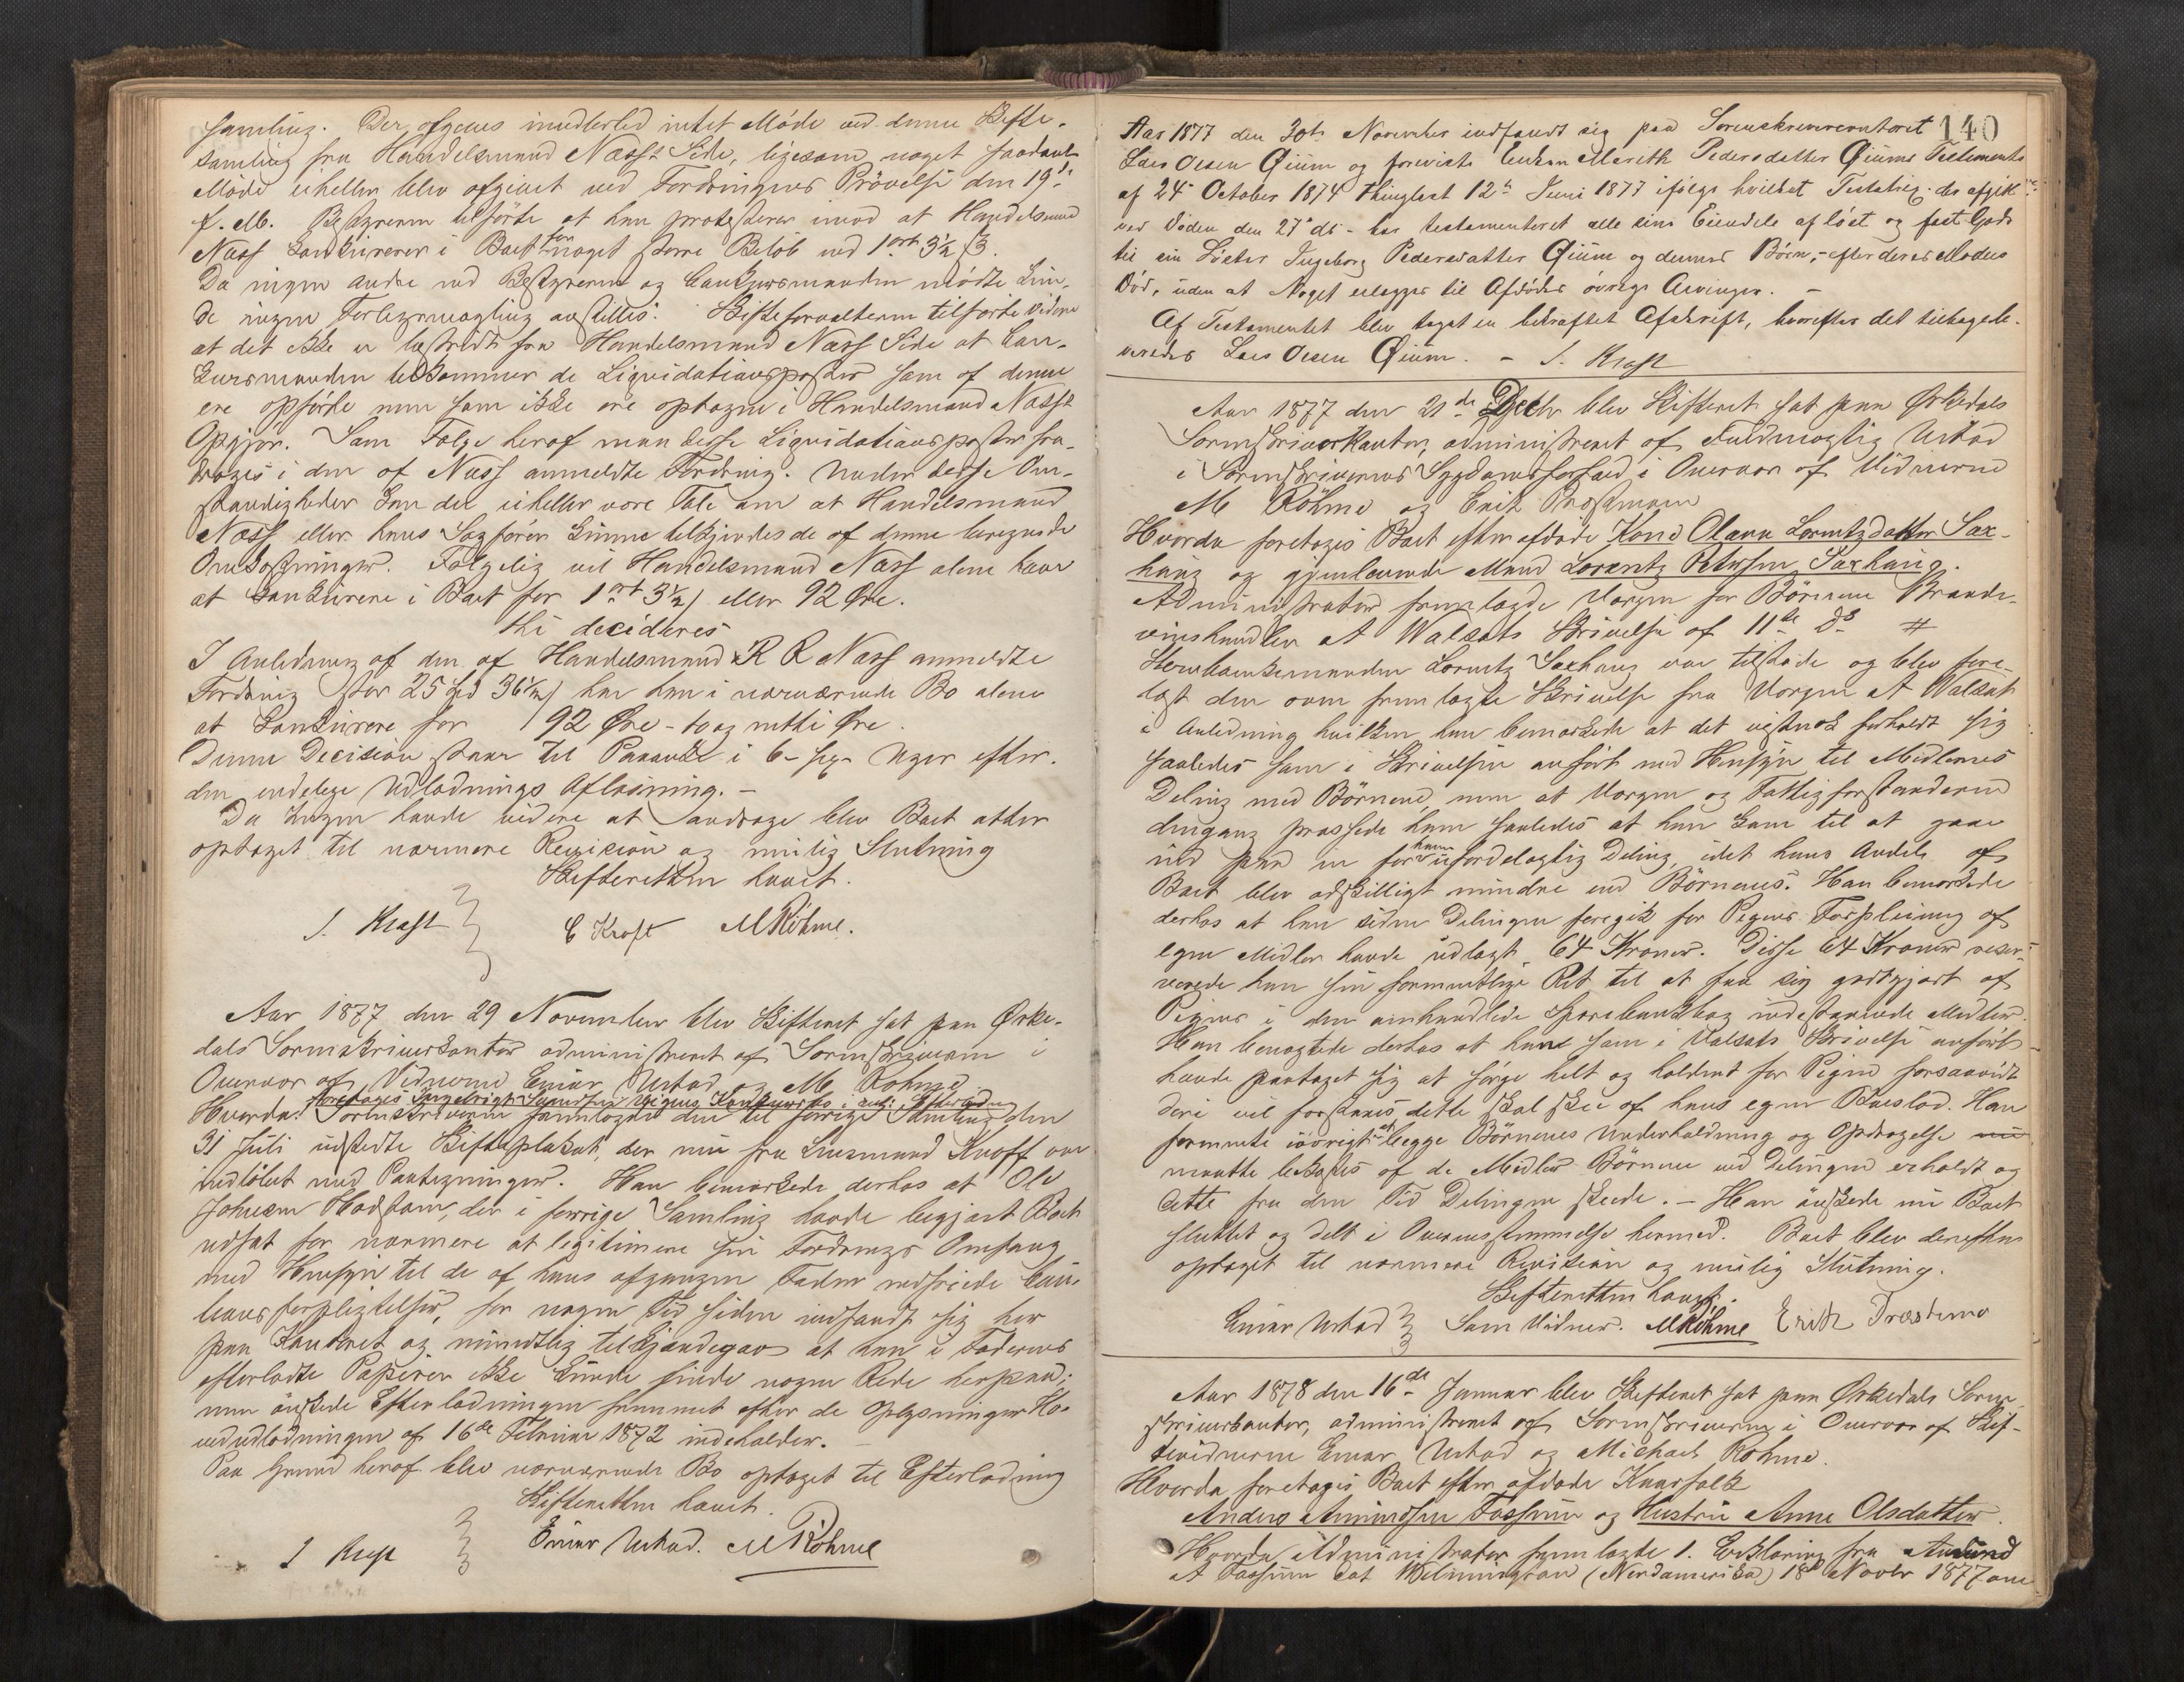 samling. Der afgaves imidlertid intet Møde ved denne Skifte-
samling fra Handelsmand Næss's Side, ligesom noget saadant
Møde ikke heller blev afgivet ved Fordringens Prøvelse den 19de
f. M. Bestyreren tilførte at han protesterer imod at Handelsmand
Næss konkurerer i Boet for noget større Beløb end 1 ort 3½ ß.
Da ingen andre end Bestyreren og Concursmanden mødte kun-
de ingen Forligsmægling anstilles. Skifteforvalteren tilførte videre
at det ikke er bestridt fra Handelsmand Næss Side at Con-
kursmanden tilkommer de Liqvidationsposter som af denne
ere opførte men som ikke ere optagne i Handelsmand Næss's
Opgjør. Som Følge heraf maa disse Liqvidationsposter fra-
drages i den af Næss anmeldte Fordring. Under disse Om-
stændigheder kan der ikke heller være Tale om at Handelsmand
Næss eller hans Sagfører kunne tilkjendes de af denne beregnede
Omkostninger. Følgelig vil Handelsmand Næss alene have
at konkurere i Boet for 1 ort 3½ ß eller 92 Øre.
thi decideres
I Anledning af den af Handelsmand R R Næss anmeldte
Fordring stor 25 Spd 36½ ß har han i nærværende Bo alene
at konkurere for 92 Øre - to og nitti Øre.
Denne Decision staar til Paaanke i 6 - sex Uger efter
den endelige Udlodnings Aflæsning. -
Da Ingen havde videre at andrage blev Boet atter
optaget til nærmere Revision og mulig Slutning
Skifteretten hævet.
J. Kraft C Kraft M Röhme.
Aar 1877 den 29 November blev Skifteret sat paa Örke-
dals Sorenskriverkontor administreret af Sorenskriveren i
Overvær af Vidnerne Einar Urstad og M. Rohme.
foretages Ingebrigt
Hvorda: Sorenskriveren fremlagde den til forrige Samling den
31 Juli udstedte Skifteplakat, der nu fra Lensmand Knoff var
indløbet med Paategninger. Han bemærkede derhos at Ole
Johnsen Hoston, der i forrige Samling havde begjært Boet
udsat for nærmere at legitimere sin Fordrings Omfang
med Hensyn til de af hans afgangne Fader indfriede Cau-
tionsforpligtelser, for nogen Tid siden indfandt sig her
paa Kontoret og mundtlig tilkjendegav at han i Faderens
efterladte Papirer ikke kunde finde nogen Rede herpaa;
men ønskede Efterlodningen fremmet efter de Oplysninger Ho-
vedudlodningen af 16de Februar 1872 indeholder. -
Paa Grund heraf blev nærværende Bo optaget til Efterlodning
Skifteretten hævet.
J Kraft Einar Urstad. M Röhme
140
Aar 1877 den 30te November indfandt sig paa Sorenskriverkontoret
Lars Olsen Qium og foreviste Enken Marith Pedersdatter Qiums Testamente
af 24de October 1874 thinglæst 12te Juni 1877 ifølge hvilket Testatrix der afgik
ved Døden den 27de ds - har testamenteret alle sine Eiendele af løst og fast Gods
til sin Søster Ingeborg Pedersdatter Qium og dennes Børn, efter deres Moders
Død, uden at Noget erlægges til Afdødes øvrige Arvinger. -
Af Testamentet blev taget en bekræftet Afskrift, hvorefter det tilbagele-
veredes Lars Olsen Qium. - J. Kraft
Aar 1877 den 21de Decbr blev Skifteret sat paa Ørkedals
Sorenskriverkontor, administreret af Fuldmægtig Urstad
i Sorenskriverens Sygdomsforfald i Overvær af Vidnerne
M Röhme og Erik Træstemoen
Hvorda foretoges Boet efter afdøde Kone Olava Lorentzdatter Sax-
haug og gjenlevende Mand Lorentz Petersen Saxhaug.
Administrator fremlagde Vergen for Börnene Brænde-
viinshandler A Walsets Skrivelse af 11te ds #
Stervboenkemanden Lorentz Saxhaug var tilstede og blev fore-
læst den ovm fremlagte Skrivelse fra Vergen A Walset
i Anledning hvilken han bemærkede at det vistnok forholdt sig
saaledes som i Skrivelsen anført med Hensyn til Midlernes
Deling med Börnene, men at Vergen og Fattigforstanderne
dengang pressede ham saaledes at han kom til at gaae
ind paa en for ham ufordelagtig Deling, idet hans Andel af
Boet blev adskilligt mindre end Börnenes. Han bemærkede
derhos at han siden Delingen foregik for Pigens Forpleining af
egne Midler havde udlagt 64 Kroner. Disse 64 Kroner reser-
verede han sin formentlige Ret til at faa sig godtgjort af
Pigens i den omhandlede Sparebankbog indestaaende Midler.
Han benægtede derhos at have som i Valsets Skrivelse anført
havde paataget sig at sørge helt og holdent for Pigen forsaavidt
deri vil forstaaes dette skal ske af hans egen Boeslod. Han
formente iøvrigt at begge Börnenes Underholdning og Opdragelse
maatte bekostes af de Midler Börnene ved Delingen erholdt og
dette fra den Tid Delingen skede. - Han ønskede nu Boet
sluttet og delt i Overensstemmelse hermed. Boet blev derefter
optaget til nærmere Revision og mulig Slutning.
Skifteretten hævet.
Einar Urstad Som Vidner. M Röhme Erik Træstemo
Aar 1878 den 16de Januar blev Skifteret sat paa Ørkedals Soren-
skriverkontor, administreret af Sorenskriveren i Overvær af Skif-
tevidnerne Einar Urstad og Michael Rohme.
Hvorda foretages Boet efter afdøde Kaarfolk
Anders Amundsen Fossum og Hustru Anne Olsdatter.
Hvorda Administrator fremlagde 1. Erklæring fra Amund
A Fossum dat Wilmington (Nordamerika) 18de Novbr 1877 om